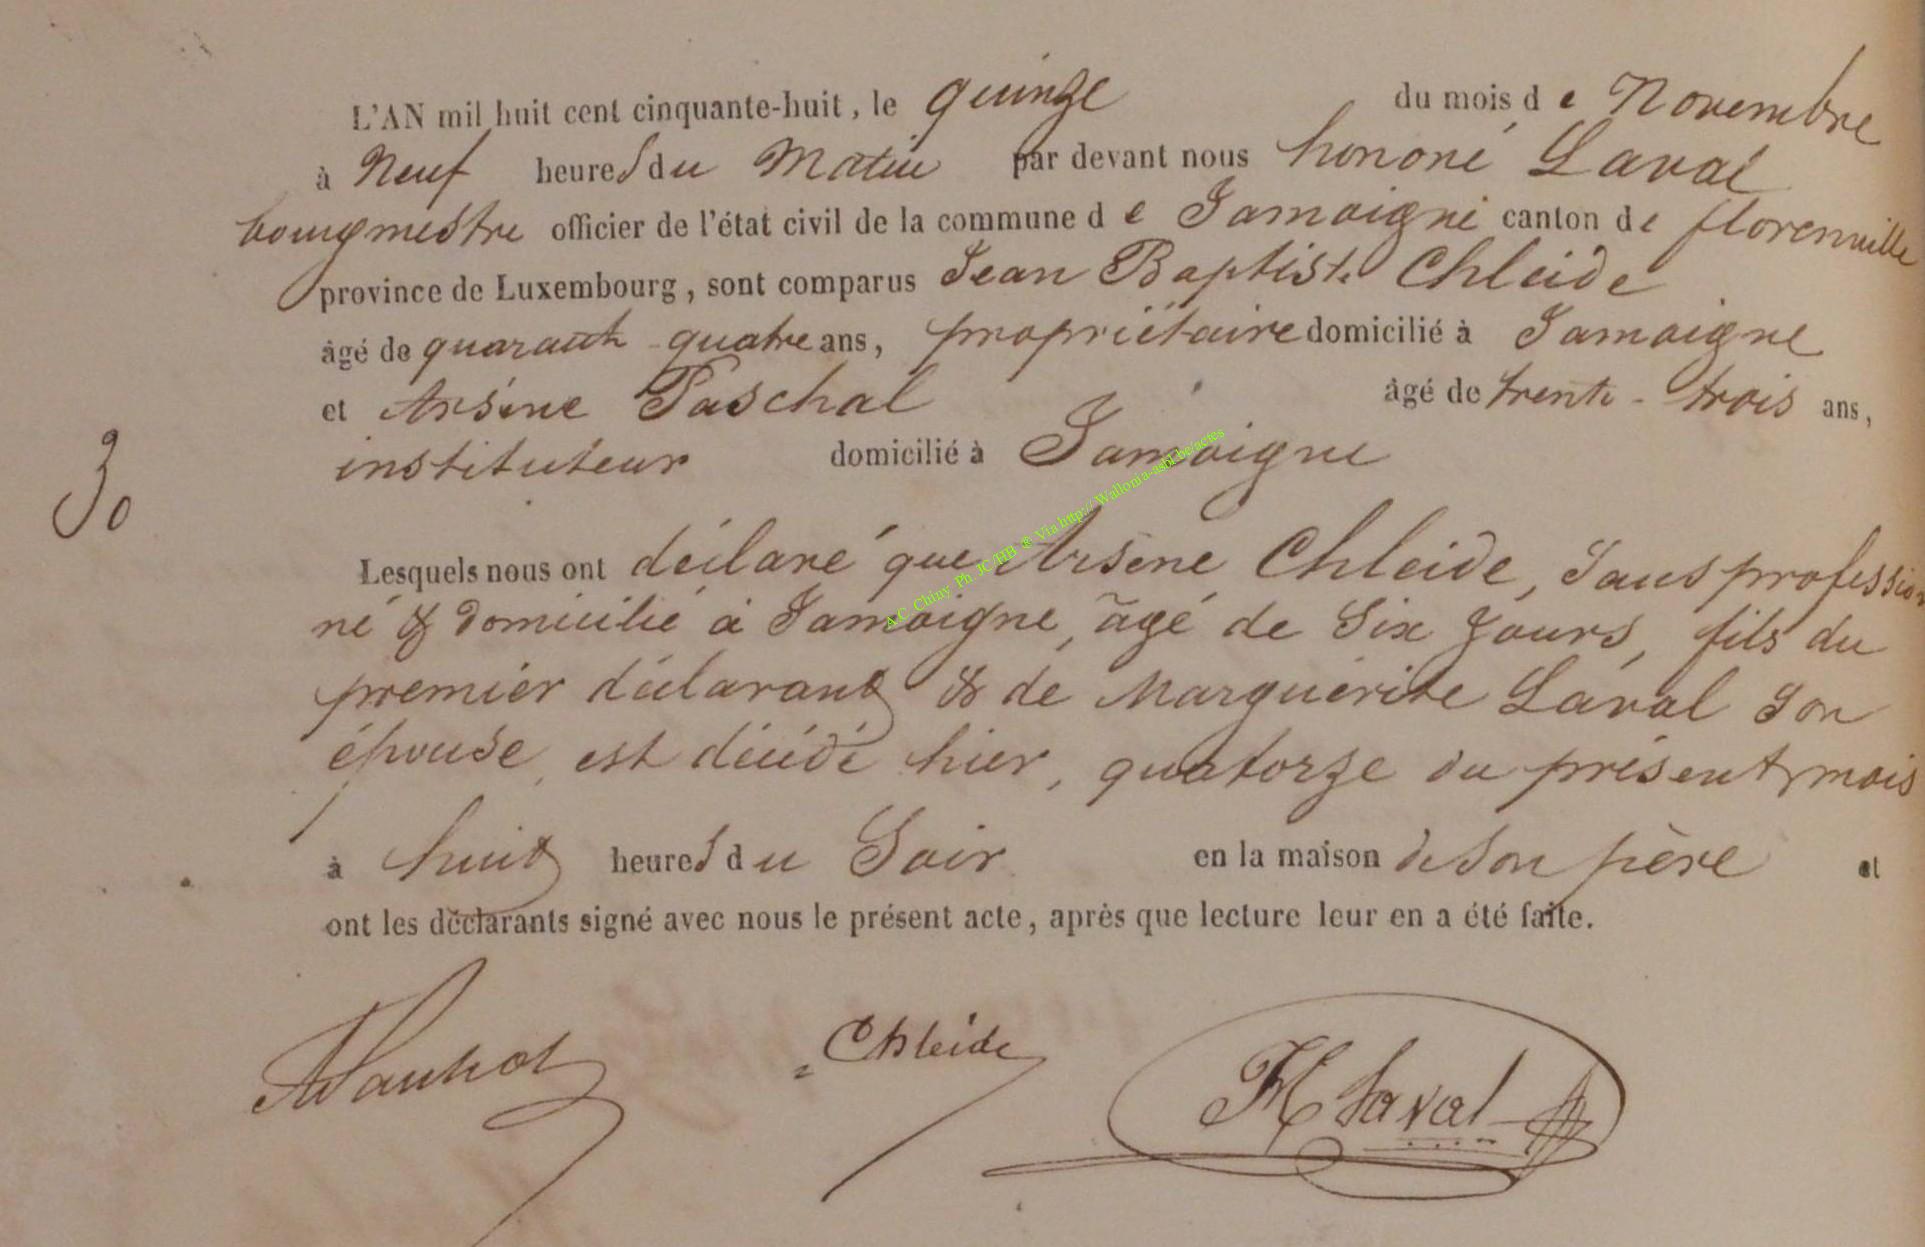 L'AN mil huit cent cinquante-huit, le quinze du mois de Novembre
à Neuf heures du Matin par devant nous honoré Laval
bourgmestre officier de l'état civil de la commune de Jamoigne canton de florenville
province de Luxembourg, sont comparus Jean Baptiste Chleide
âgé de quarante-quatre ans, propriétaire domicilié à Jamoigne
et Arsène Paschal âgé de trente-trois ans,
instituteur domicilié à Jamoigne
30
Lesquels nous ont déclaré que Arsène Chleide, Sans profession
né & domicilié à Jamoigne, âgé de Six Jours, fils du
premier déclarant & de Marguérite Laval Son
épouse, est décédé hier, quatorze du présent mois
à huit heures du Soir en la maison de Son père et
ont les déclarants signé avec nous le présent acte, après que lecture leur en a été faite.
Chleide
H Laval
A.C. Chiny Ph. JC/HB ® Via http://Wallonia-asbl.be/actes